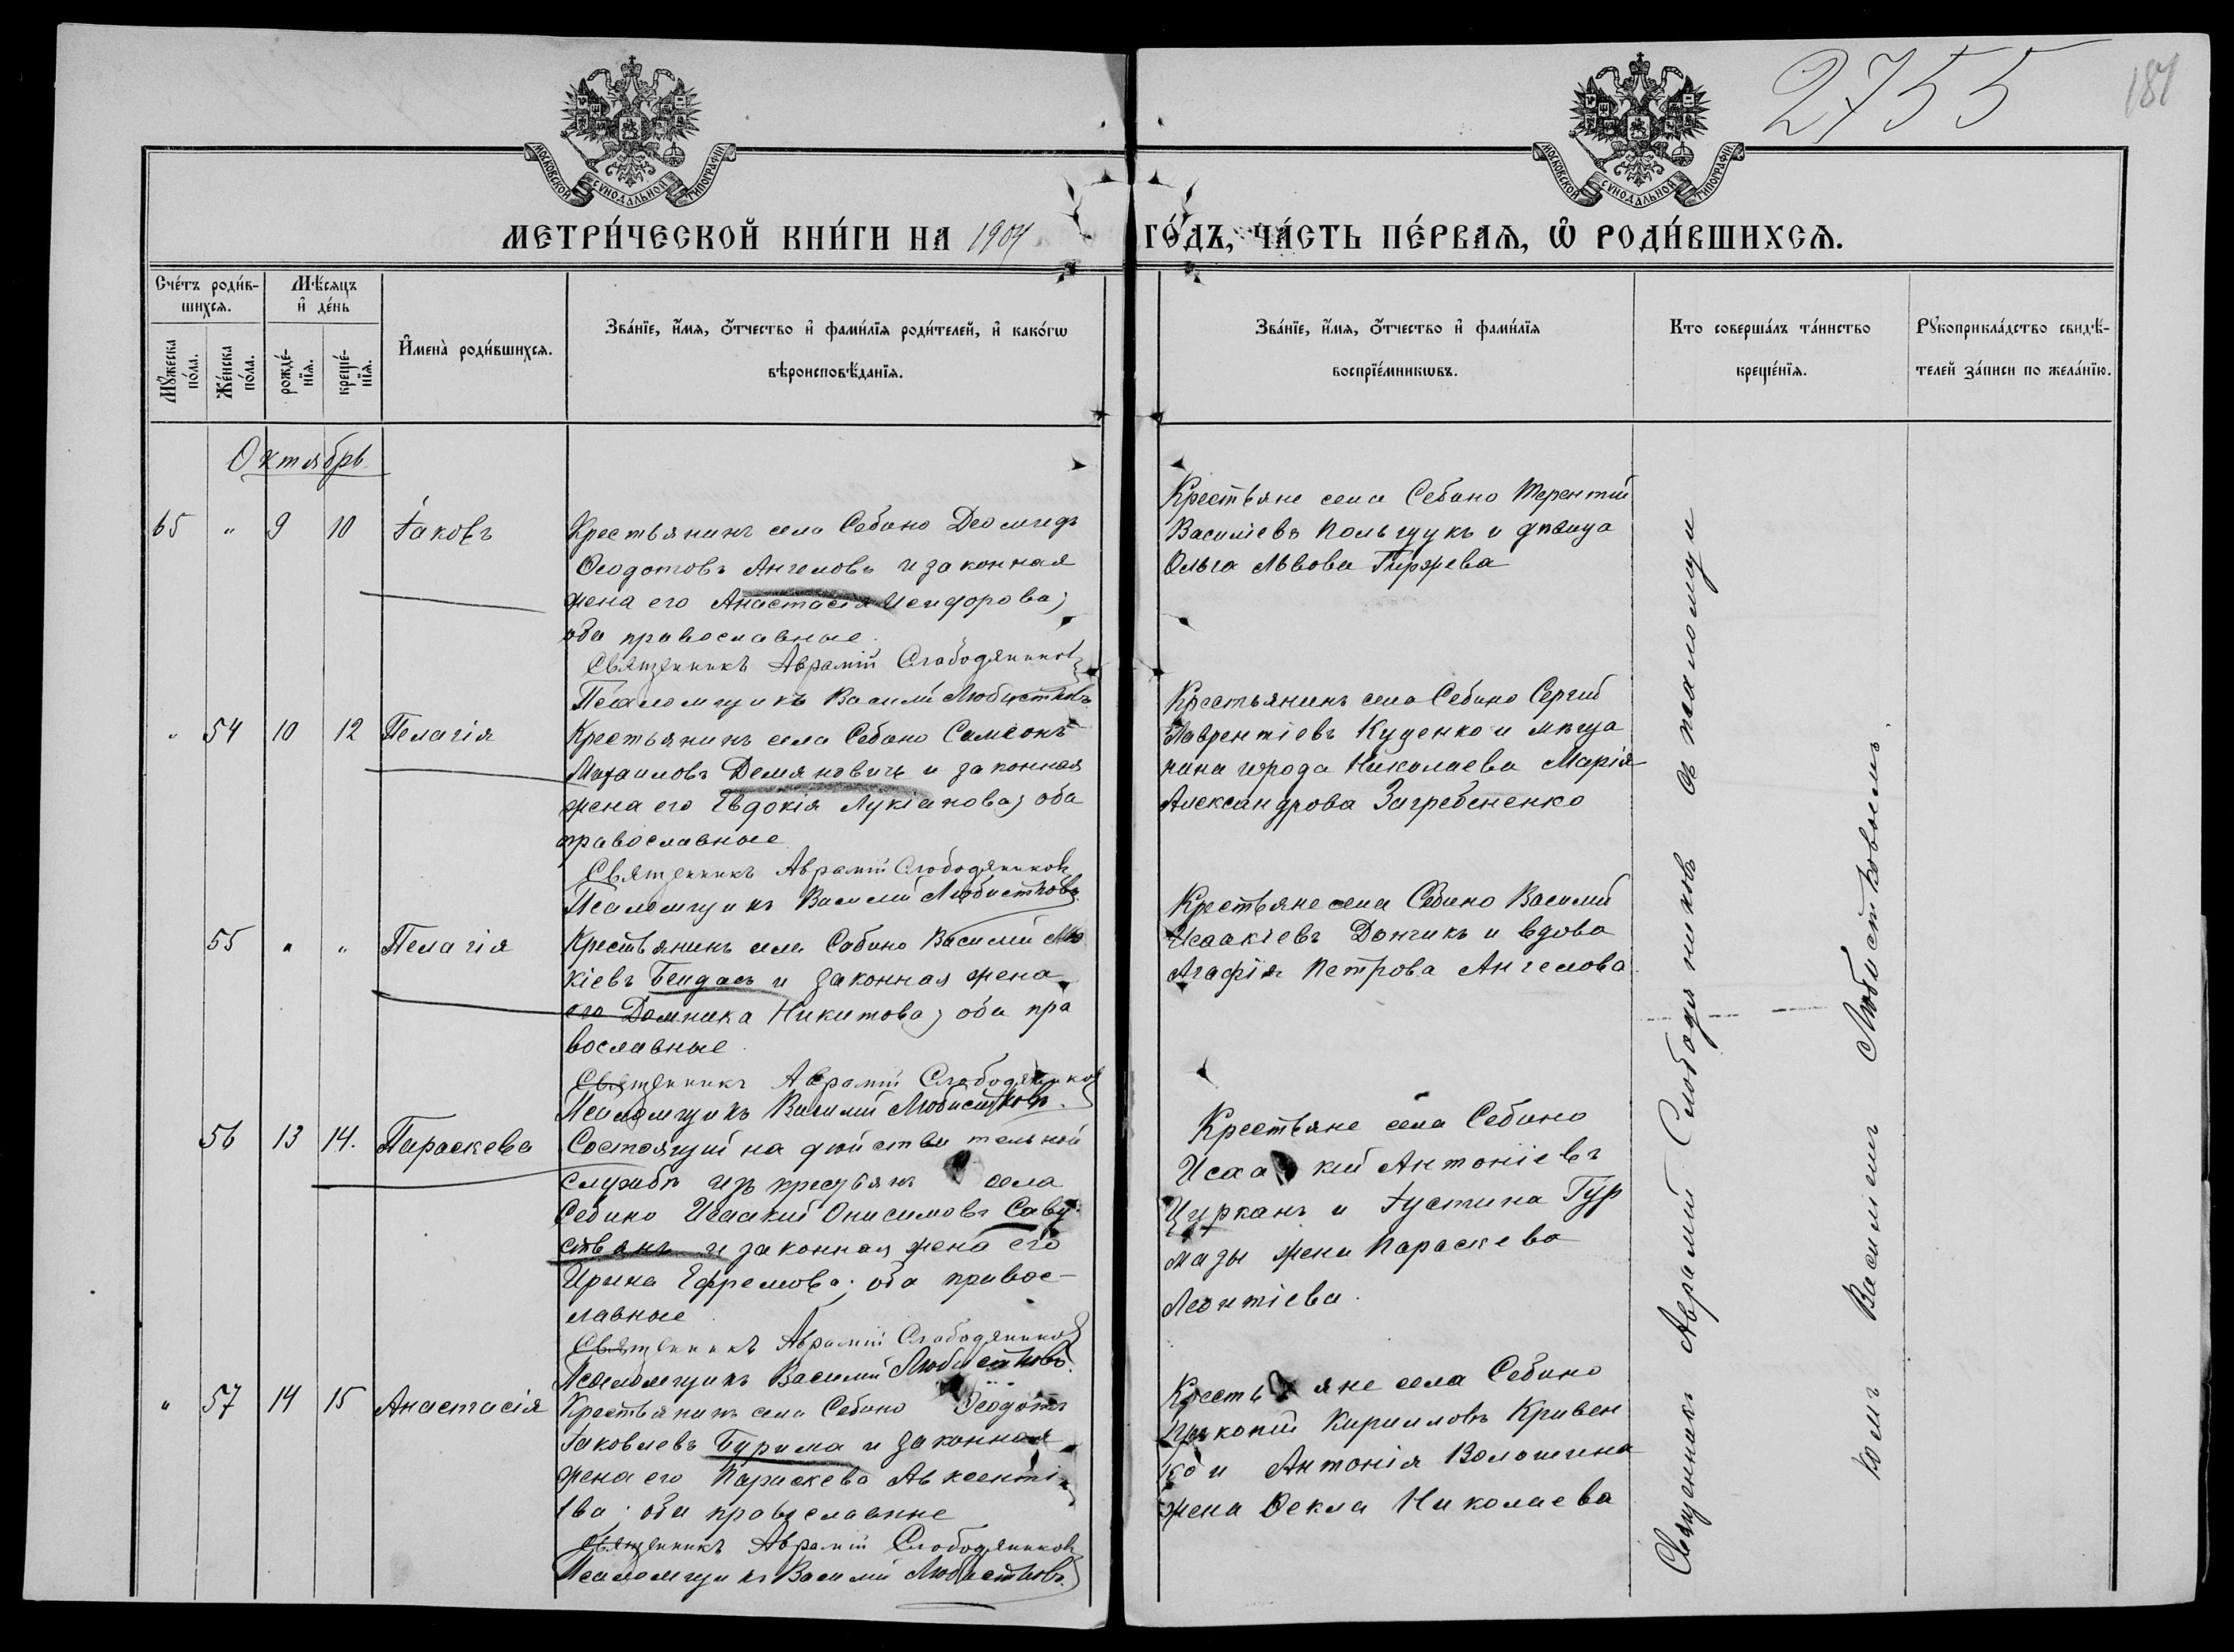 2755
181
МОСКОВСКОЙ СѴНОДАЛЬНОЙ ТИПОГРАФІИ
МОСКОВСКОЙ СѴНОДАЛЬНОЙ ТИПОГРАФІИ
МЕТРИ́ЧЕСКОЙ КНИ́ГИ НА 1904 ГО́ДЪ, ЧА́СТЬ ПЕ́РВАѦ, Ѡ҆ РОДИ́ВШИХСѦ.
Сче́тъ роди́в-
шихсѧ.
Мꙋ́жеска по́ла.
Же́нска по́ла.
Мѣ́сѧцъ и҆ де́нь
рожде́-нїѧ.
креще́-нїѧ.
И҆мена̀ роди́вшихсѧ.
Зва́нїе, и҆́мѧ, ѻ҆́тчество и҆ фами́лїѧ роди́телей, и҆ како́гѡ
вѣроисповѣ́данїѧ.
Зва́нїе, и҆́мѧ, ѻ҆́тчество и҆ фами́лїѧ
воспрїе́мникѡвъ.
Кто соверша́лъ та́инство
креще́нїѧ.
Рꙋкоприкла́дство свидѣ́-
телей за́писи по жела́нїю.
Октябрь
65 " 9 10 Іаковъ
Крестьянинъ села Себино Деомидъ
Ѳеодотовъ Ангеловъ и законная
жена его Анастасія Исидорова;
оба православные.
Священникъ Аврамій Слободяниковъ
Псаломщикъ Василій Любистковъ
Крестьяне села Себино Терентій
Василіевъ Польщукъ и дѣвица
Ольга Львова Гиржева
" 54 10 12 Пелагія
Крестьянинъ села Себино Симеонъ
Михаиловъ Демяновичъ и законная
жена его Евдокія Лукіанова; оба
православные
Священникъ Аврамій Слободяниковъ
Псаломщикъ Василій Любистковъ
Крестьянинъ села Себино Сергій
Лаврентіевъ Куценко и мѣща
нина города Николаева Марія
Александрова Загребененко
55 " " Пелагія
Крестьянинъ села Себино Василій Мо
кіевъ Бендасъ и законная жена
его Домника Никитова; оба пра
вославные.
Священникъ Аврамій Слободяниковъ
Псаломщикъ Василій Любистковъ.
Крестьяне села Себино Василій
Исаакіевъ Дончикъ и вдова
Агафія Петрова Ангелова.
56 13 14. Параскева
Состоящій на дѣйствительной
службѣ изъ крестьянъ села
Себино Исаакій Онисимовъ Саву
стьянъ и законная жена его
Ирина Ефремова; оба правос-
лавные.
Священникъ Аврамій Слободяниковъ
Псаломщикъ Василій Любистковъ.
Крестьяне села Себино
Исаакій Антоніевъ
Цурканъ и Іустина Гур
мазы жена Параскева
Леонтіева.
" 57 14 15 Анастасія
Крестьянинъ села Себино Ѳеодотъ
Іаковлевъ Бурима и законная
жена его Параскева Авксенті
ева; оба православные
Священникъ Аврамій Слободяниковъ
Псаломщикъ Василій Любистковъ.
Крестьяне села Себино
Прокопій Кирилловъ Кривен
ко и Антонія Волошина
жена Ѳекла Николаева
Священникъ Аврамій Слободяниковъ съ псаломщи
комъ Василіемъ Любистковымъ.